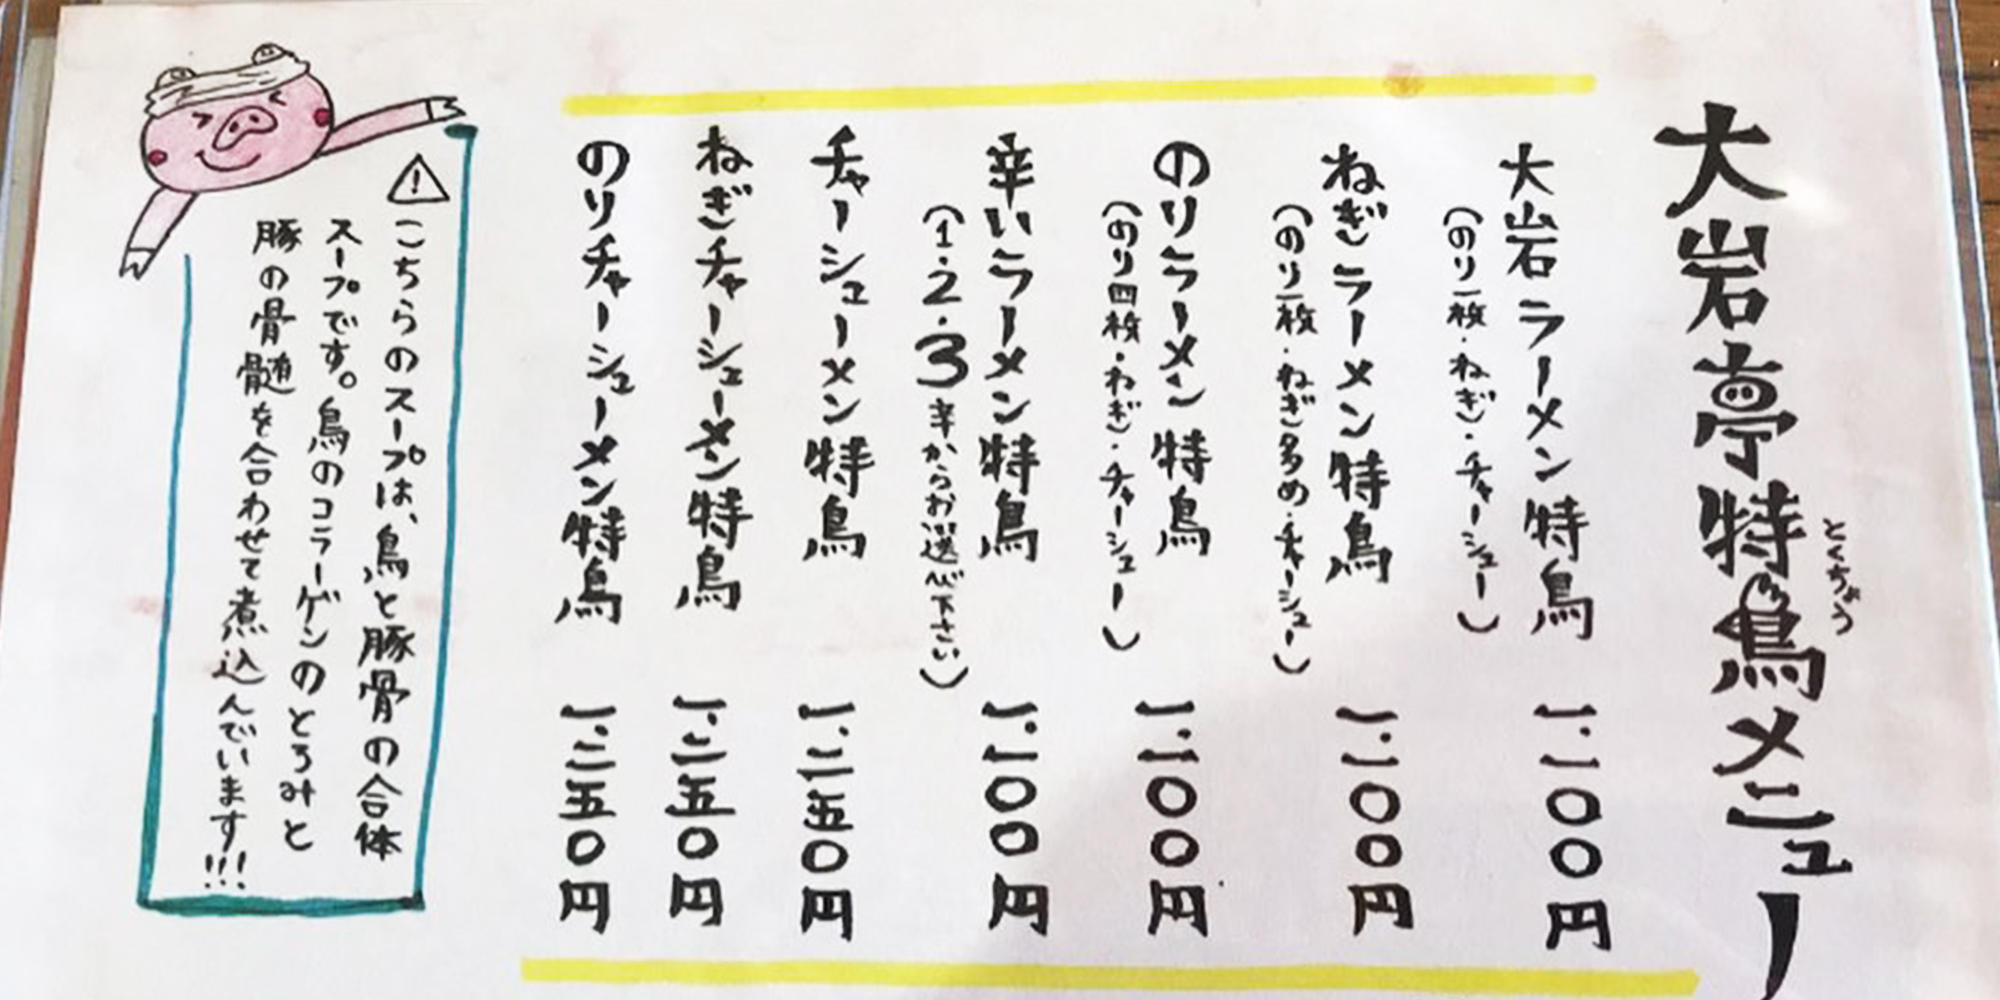 大岩亭特鳥メニュー
とくちょう
大岩ラーメン特鳥 一.一〇〇円
(のり一枚・ねぎ・チャーシュー)
ねぎラーメン特鳥 一.一〇〇円
(のり一枚・ねぎ多め・チャーシュー)
のりラーメン特鳥 一.一〇〇円
(のり四枚・ねぎ・チャーシュー)
辛いラーメン特鳥 一.一〇〇円
(1・2・3辛からお選び下さい)
チャーシューメン特鳥 一.二五〇円
ねぎチャーシューメン特鳥 一.二五〇円
のりチャーシューメン特鳥 一.二五〇円
⚠こちらのスープは、鳥と豚骨の合体
スープです。鳥のコラーゲンのとろみと
豚の骨髄を合わせて煮込んでいます!!!